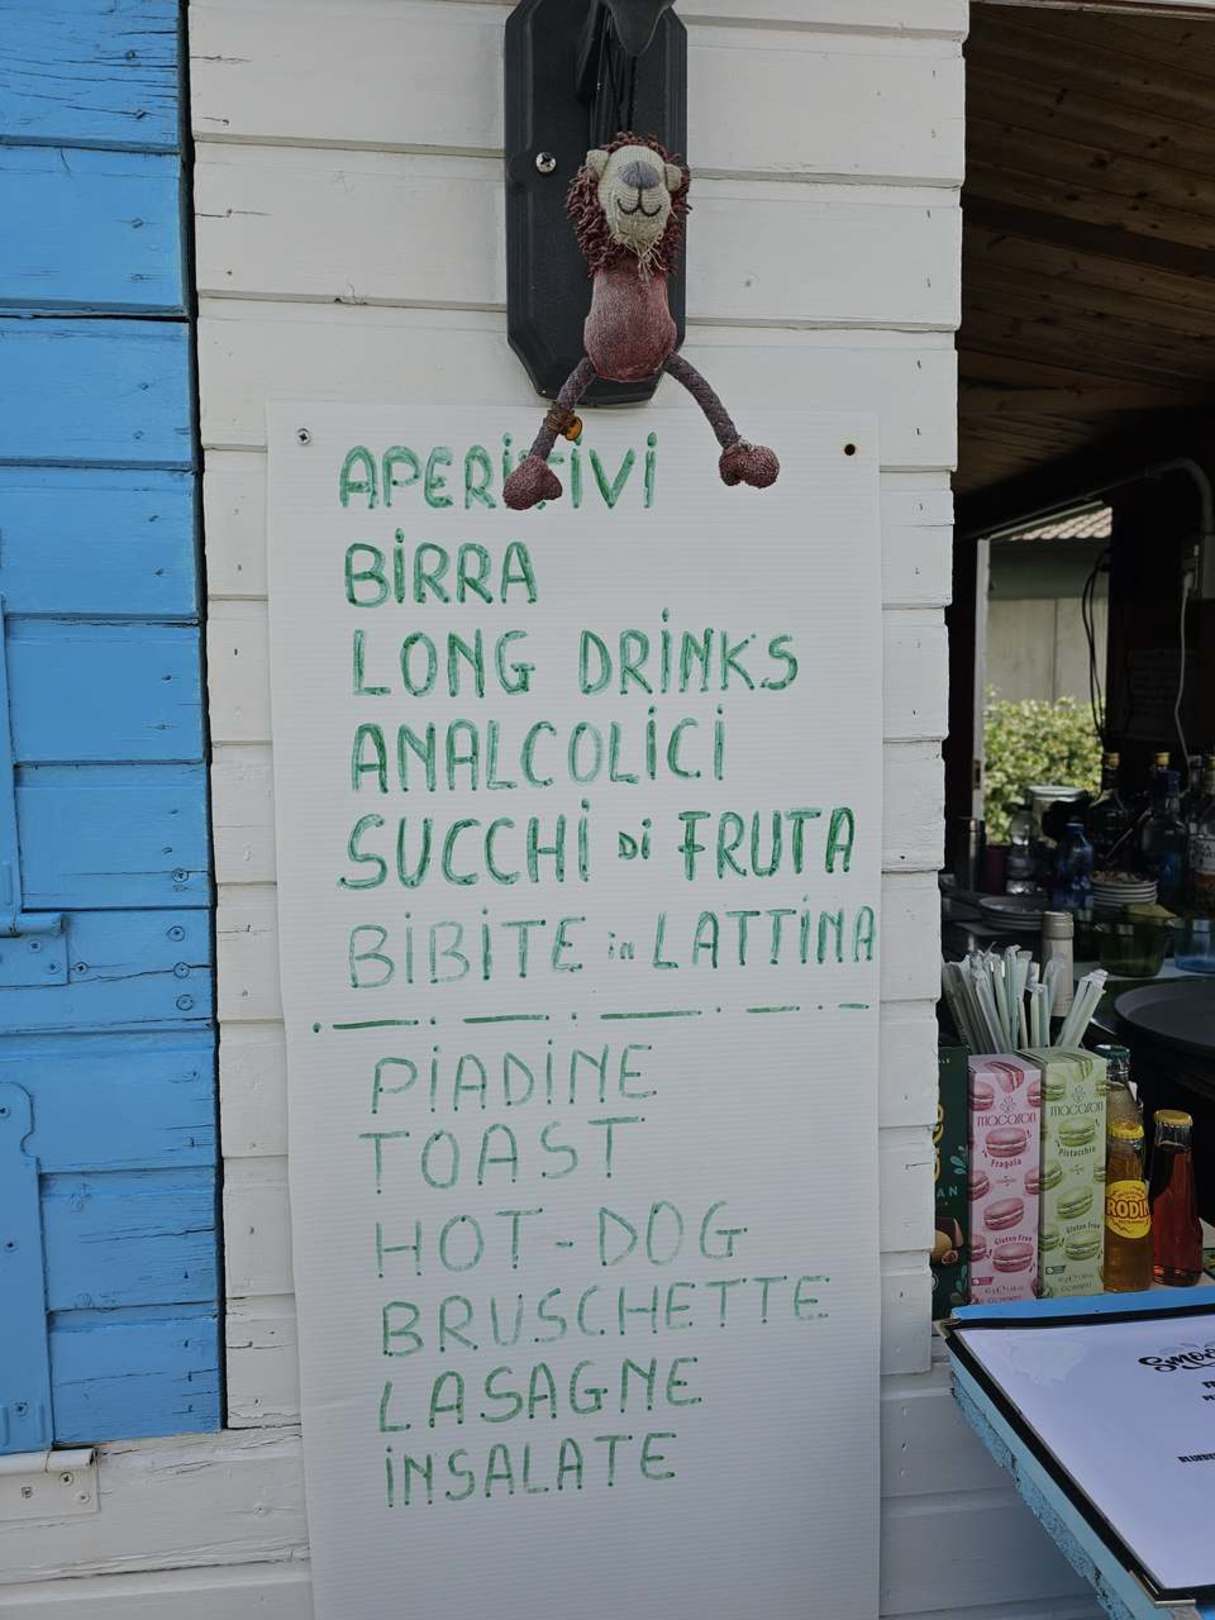 APERITIVI
BIRRA
LONG DRINKS
ANALCOLICI
SUCCHI Di FRUTA
BIBITE in LATTINA
PIADINE
TOAST
HOT-DOG
BRUSCHETTE
LASAGNE
INSALATE
macaron
Fragola
macaron
Pistacchio
Gluten Free
Gluten Free